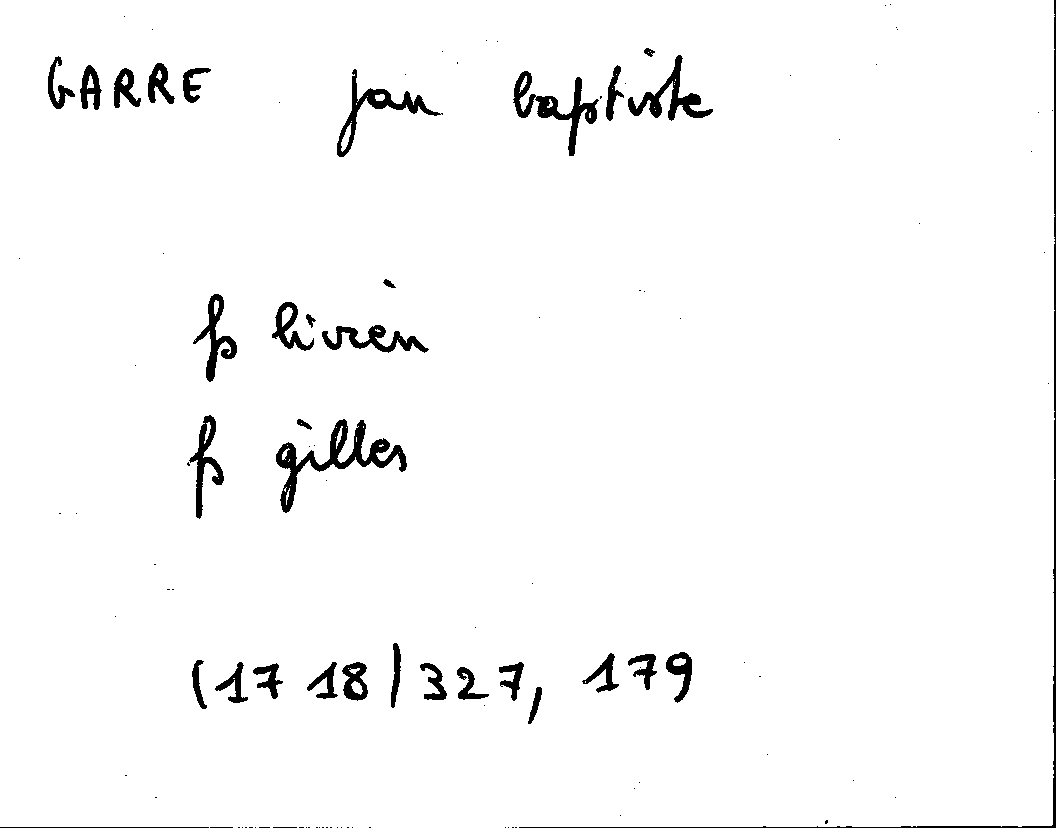 GARRE jan baptiste
fs livien
fs gilles
(1718) 327, 179